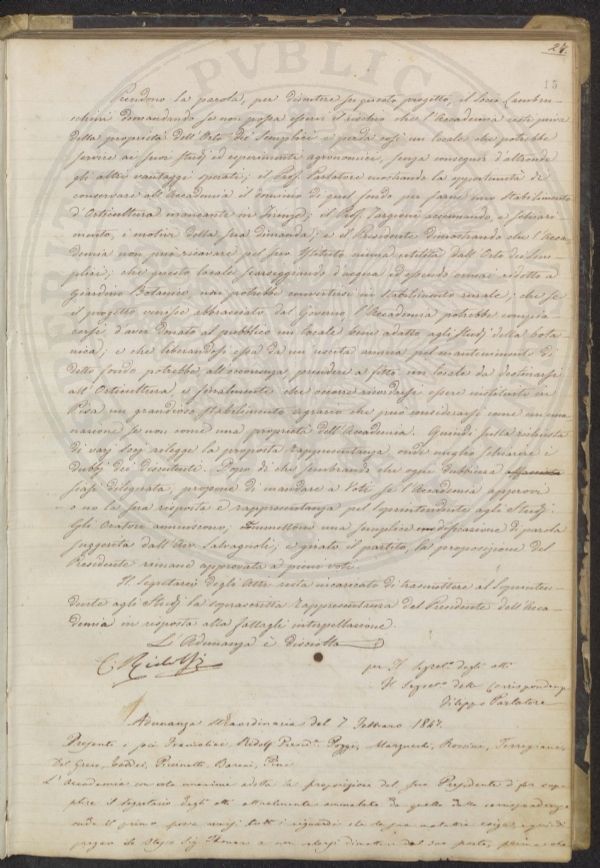 27.
15
Prendono la parola, per discutere su questo progetto, il Socio Lambru-
schini domandando se non possa essere il rischio che l'Accademia resti priva
della proprietà dell'Orto dei Semplici e perda così un locale che potrebbe
servire ai suoi studj ed esperimenti agronomici, senza conseguir d'altronde
gli altri vantaggi sperati; il Prof. Parlatore mostrando la opportunità di
conservare all'Accademia il dominio di quel fondo per farne uno Stabilimento
d'Orticultura mancante in Firenze; il Prof. Targioni accennando, a schiari
mento, i motivi della sua dimanda; e il Presidente dimostrando che l'Acca
demia non può ricavare pel suo Istituto niuna utilità dall'Orto dei Sem-
plici; che questo locale scarseggiando d'acqua ed essendo omai ridotto a
Giardino Botanico non potrebbe convertirsi in stabilimento rurale; che se
il progetto venisse abbracciato dal Governo l'Accademia potrebbe compia-
cersi d'aver donato al pubblico un locale bene adatto agli studj della bota
nica; e che liberandosi essa da un uscita annua pel mantenimento di
detto fondo potrebbe all'occorrenza, prendere a fitto un locale da destinarsi
all'Orticultura e finalmente che occorre ricordarsi essere instituito in
Pisa un grandioso stabilimento agrario che può considerarsi come
nazione se non come una proprietà dell'Accademia. Quindi sulla richiesta
di varj Socj rilegge la proposta rappresentanza, onde meglio schiarire i
dubbj dei discutenti. Dopo di che sembrando che ogni dubbiezza
siasi dileguata, propone di mandare a Voti se l'Accademia approvi
o no la sua risposta e rappresentanza pel Soprintendente agli Studj.
Gli Oratori annuiscono; ammettono una semplice disposizione di parola
suggerita dall'Avv. Salvagnoli; e girato il partito, la proposizione del
Presidente rimane approvata a pieni voti.
Il Segretario degli Atti resta incaricato di trasmettere al Soprinten-
dente agli Studj la soprascritta rappresentanza del Presidente dell'Acca-
demia in risposta alla fattagli interpellazione.
L'Adunanza è disciolta
C. Ridolfi
per il Segret. degli atti
Il Segret. delle Corrispondenze
Filippo Parlatore
Adunanza straordinaria del 7 Febbraro 1847.
Presenti i Ridolfi Presid. Poggi, Marzucchi, Targioni,
Del Greco, Taddei, Baroni,
L'Accademia con voto unanime adotta la proposizione del suo Presidente di far sup
plire il segretario degli atti attualmente ammalato da quello delle corrispondenze
onde il primo possa usarsi tutti i riguardi che la sua malattia esige, e quindi
pregare lo stesso Sig.